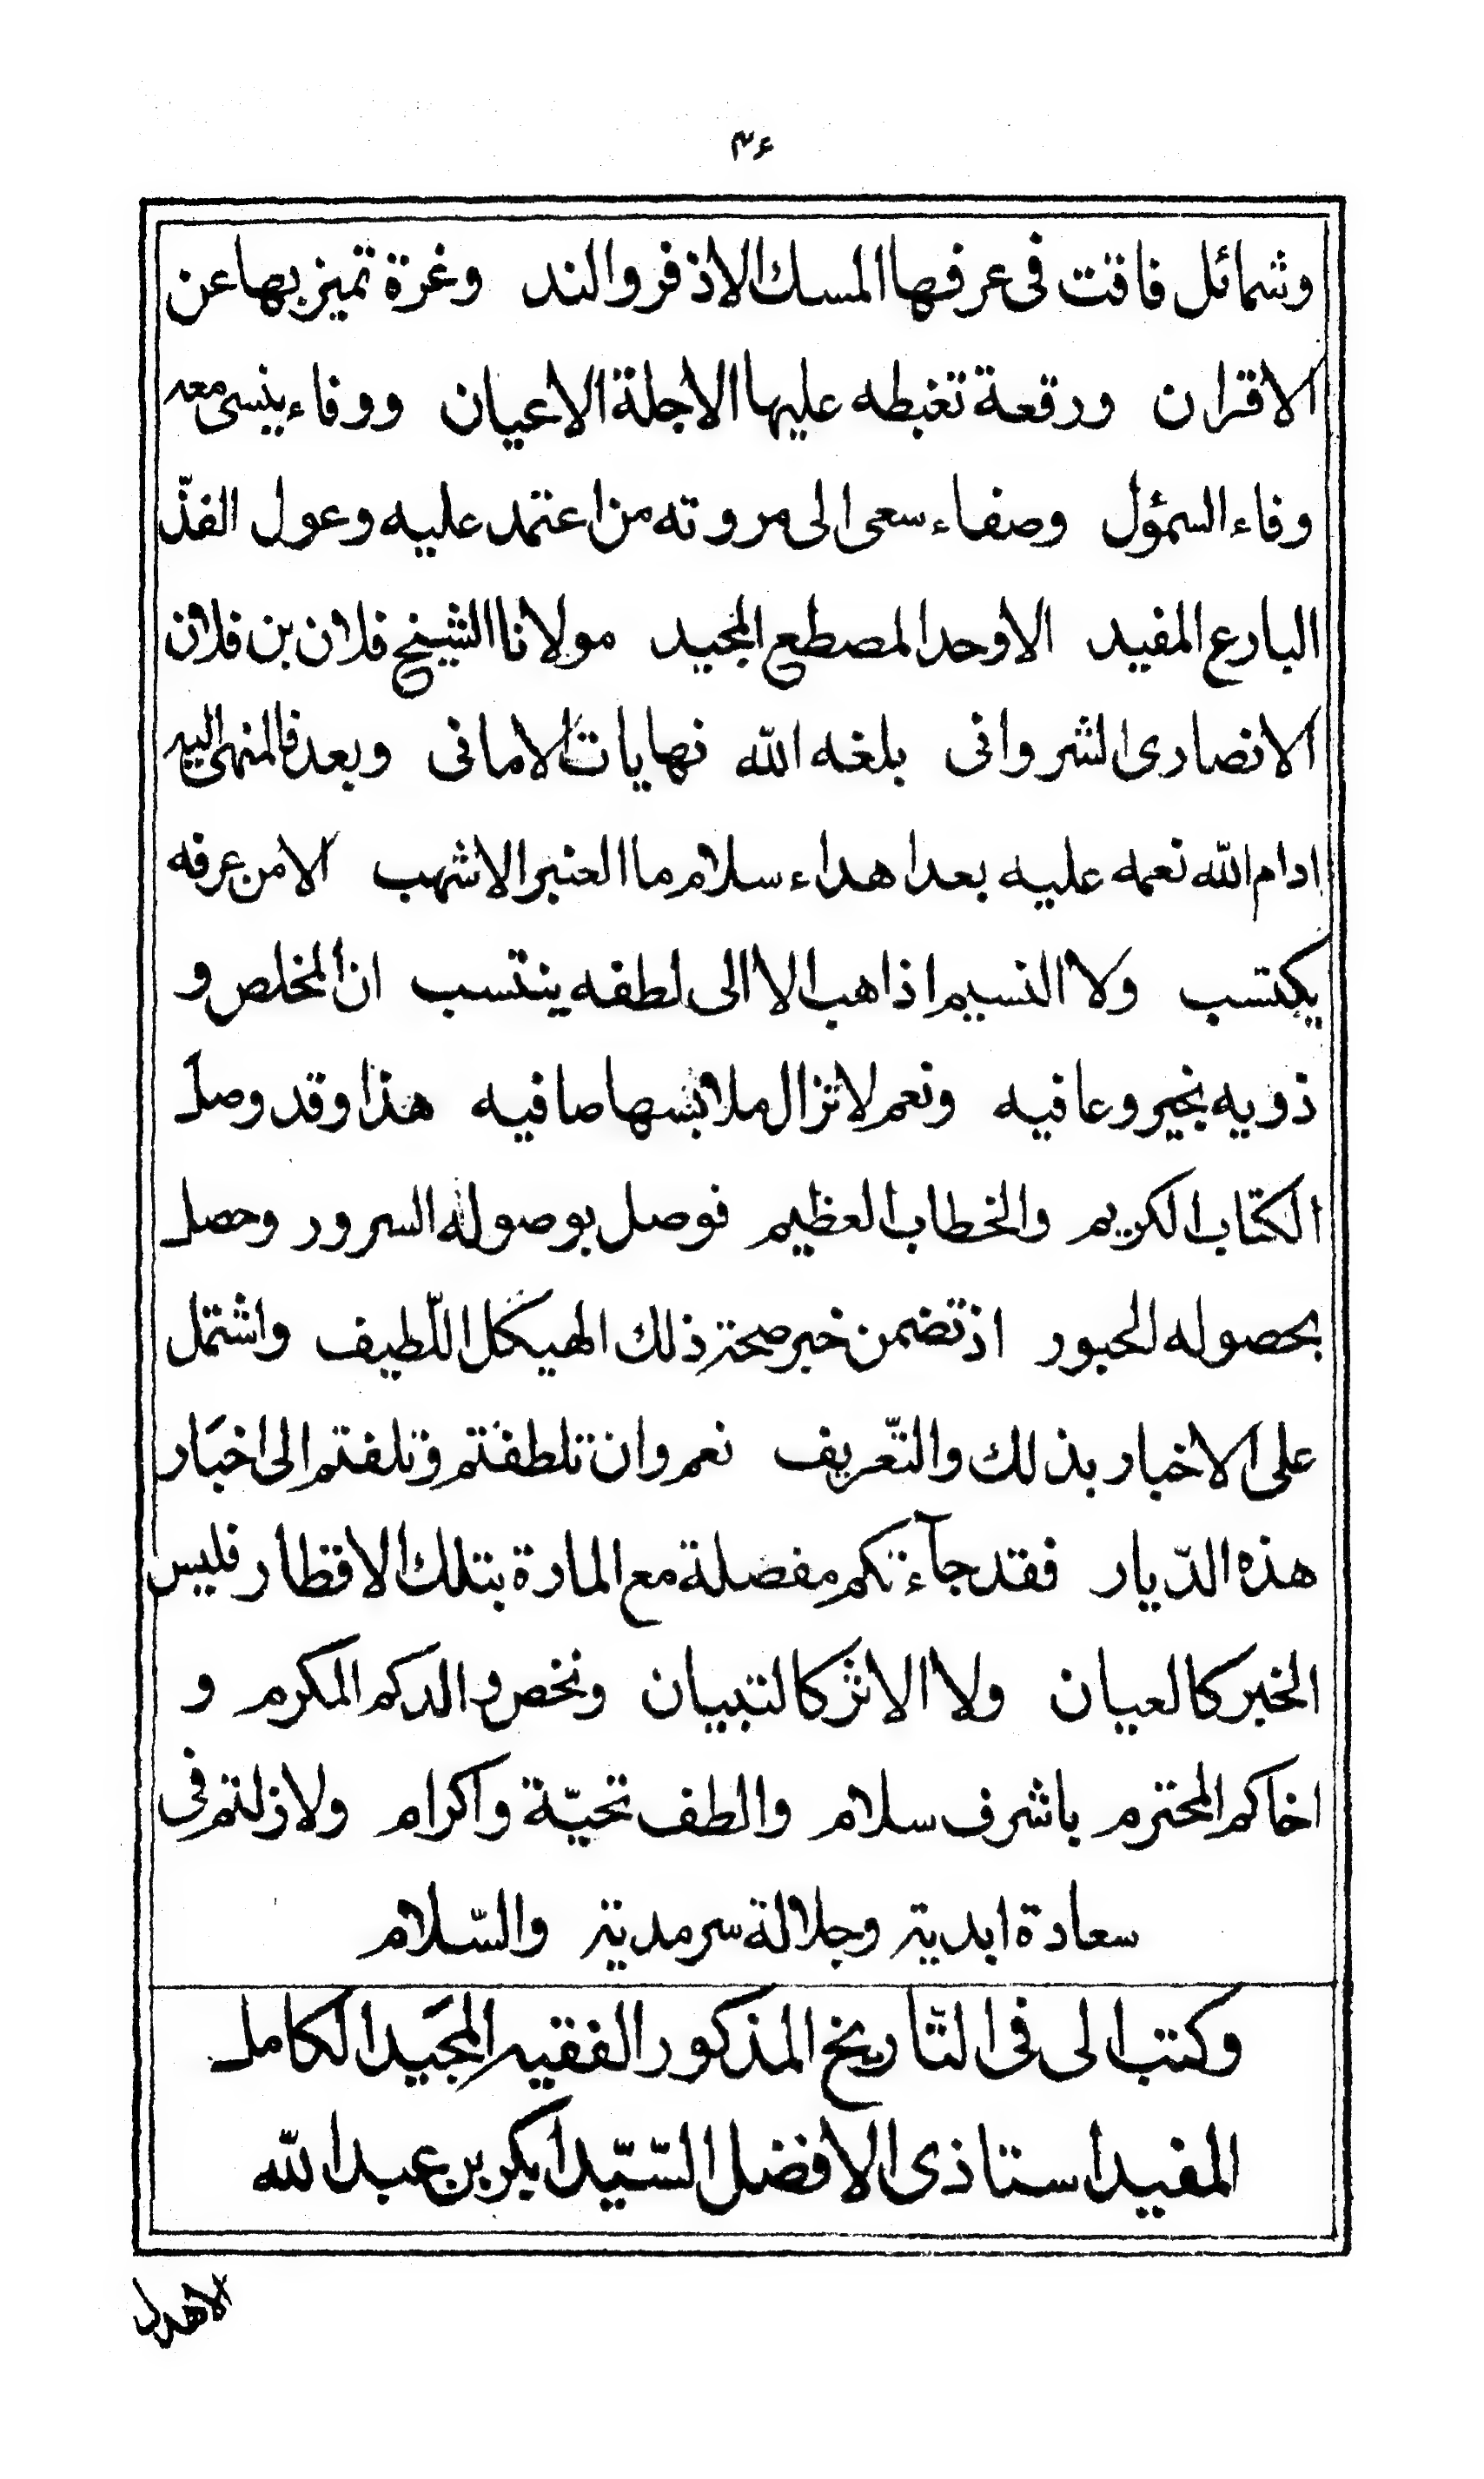 ۴۶
وشمائل فاقت فى عرفها المسك الاذفر والند وغرة تميز بها عن
الاقران ورقعة تغبطه عليها الاجلة الاعيان ووفاء ينسى معه
وفاء السمؤل وصفاء سعى الى مروته من اعتمد عليه وعول الفذّ
البارع المفيد الاوحد المصطع المجيد مولانا الشيخ فلان بن فلان
الانصارى الشروانى بلغه الله نهايات الامانى وبعد فالمنهى اليه
ادام الله نعمه عليه بعد اهداء سلام ما العنبر الاشهب الا من عرفه
يكتسب ولا النسيم اذا هب الا الى لطفه ينتسب ان المخلص و
ذويه بخير وعافيه ونعم لا تزال ملابسها صافيه هذا وقد وصل
الكتاب الكريم والخطاب العظيم فوصل بوصوله السرور وحصل
بحصوله الحبور اذ تضمن خبر صحة ذلك الهيكل اللّطيف واشتمل
على الاخبار بذلك والتّعريف نعم وان تلطفتم وتلفتم الى اخبَار
هذه الدّيار فقد جآءتكم مفصلة مع المارة بتلك الاقطار فليس
الخبر كالعيان ولا الاثر كالتبيان ونخص والدكم المكرم و
اخاكم المحترم باشرف سلام والطف تحيّة واكرام ولا زلتم فى
سعادة ابدية وجلالة سرمدية والسّلام
وكتب الى فى التّاريخ المذكور الفقيه المجَيد الكامل
المفيد استاذى الافضل السّيّد ابكر بن عبد الله
الاهدل